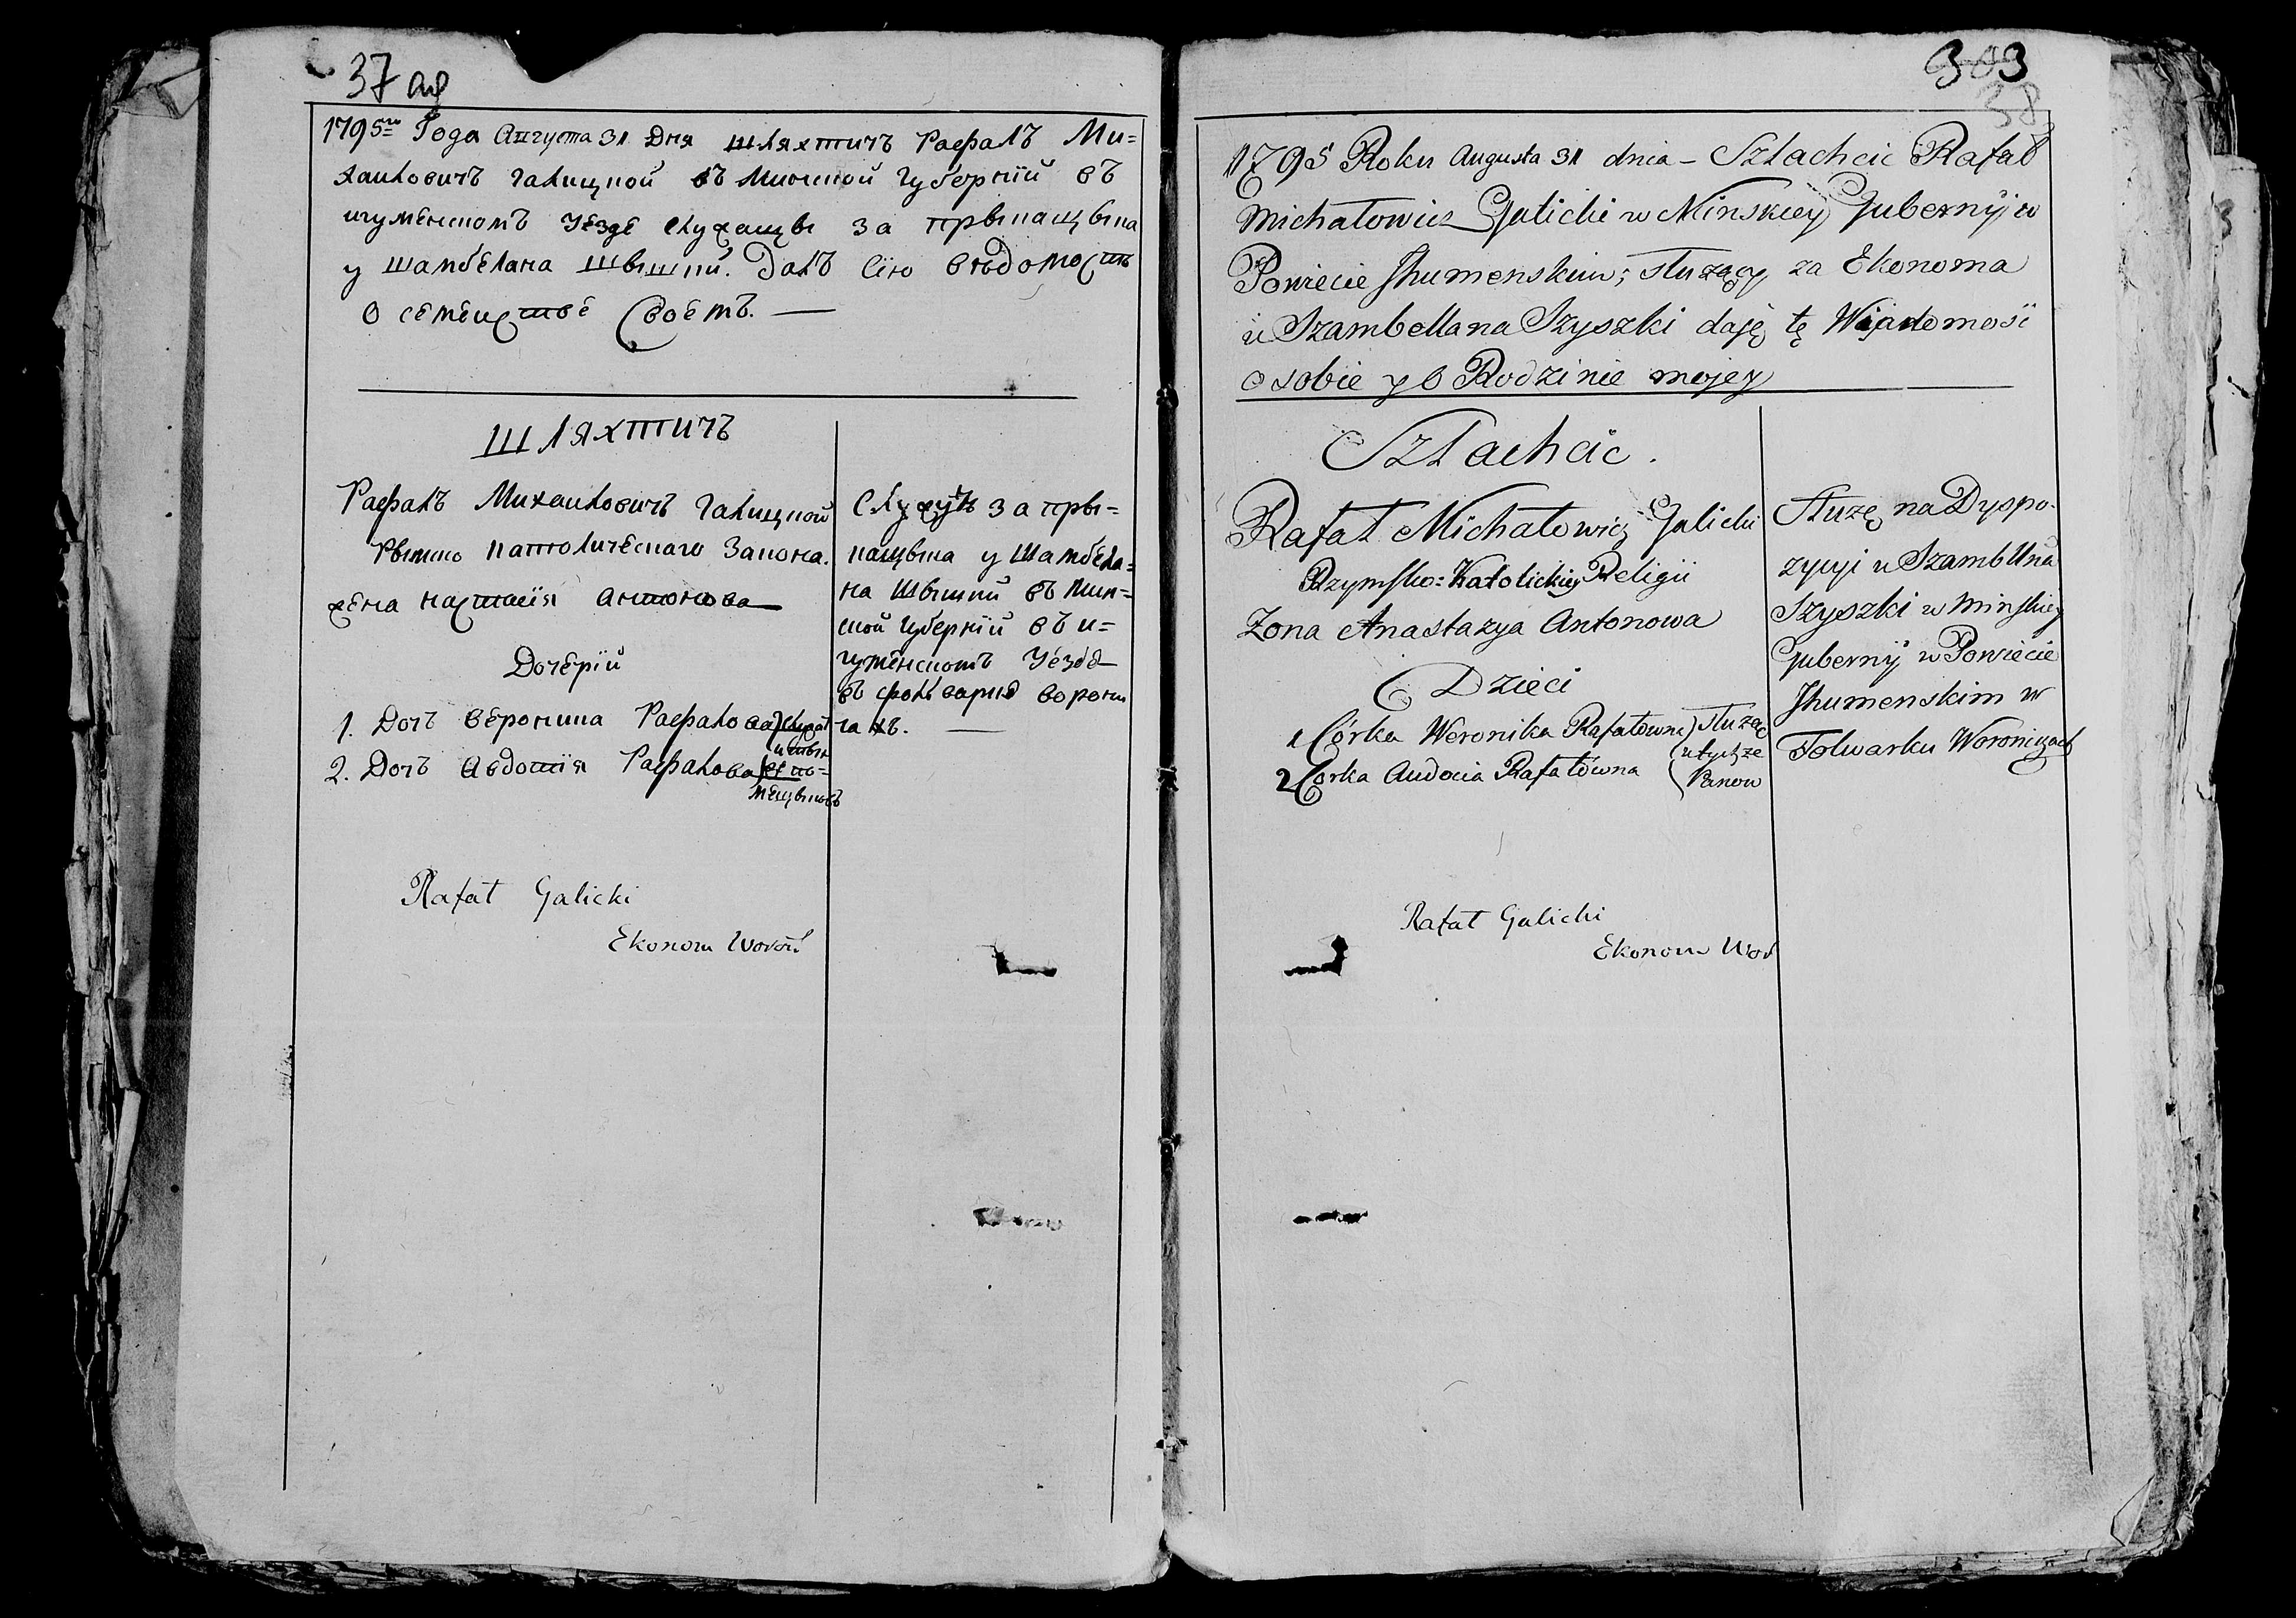 37 об
1795го Года Августа 31 Дня шляхтичъ Рафалъ Ми=
хаиловичъ Галицкой въ Минской Губерніи въ
игуменскомъ уезде служащы за прыкащыка
у шамбелана Шышки. Далъ Сію вѣдомость
О семеистве Своемъ. —
шляхтичъ
Рафалъ Михаиловичъ Галицкой
Рымско католическаго закона.
жена настасія антонова
Дочерій
1. Доч вероника Рафалова служат
2. Доч Авдотія Рафалова
Служу за пры=
кащыка у Шамбела=
на Шышки въ мин=
ской губерніи въ и=
гуменскомъ уезде
въ фолварке ворони
чахъ. —
Rafał Galicki
Ekonom Woroń
303
38
1795 Roku Augusta 31 dnia – Szlachcic Rafał
Michałowicz Galicki w Minskiey Gubernij w
Powiecie Ihumenskim; służący za Ekonoma
u Szambellana Szyszki daję tę Wiadomość
o sobie y o Rodzinie mojey
Szlachcic.
Rafał Michałowicz Galicki
Rzymsko=Katolickiey Religii
Zona Anastazya Antonowa
Dzieci
1 Córka Weronika Rafałowna służą
2 Corka Audocia Rafałówna u tychze Panow
Służę na Dyspo-
zycyi u Szambllna
Szyszki w Minskiey
Gubernij w Powiecie
Ihumenskim w
Folwarku Woroniczach
Rafał Galicki
Ekonom Wor